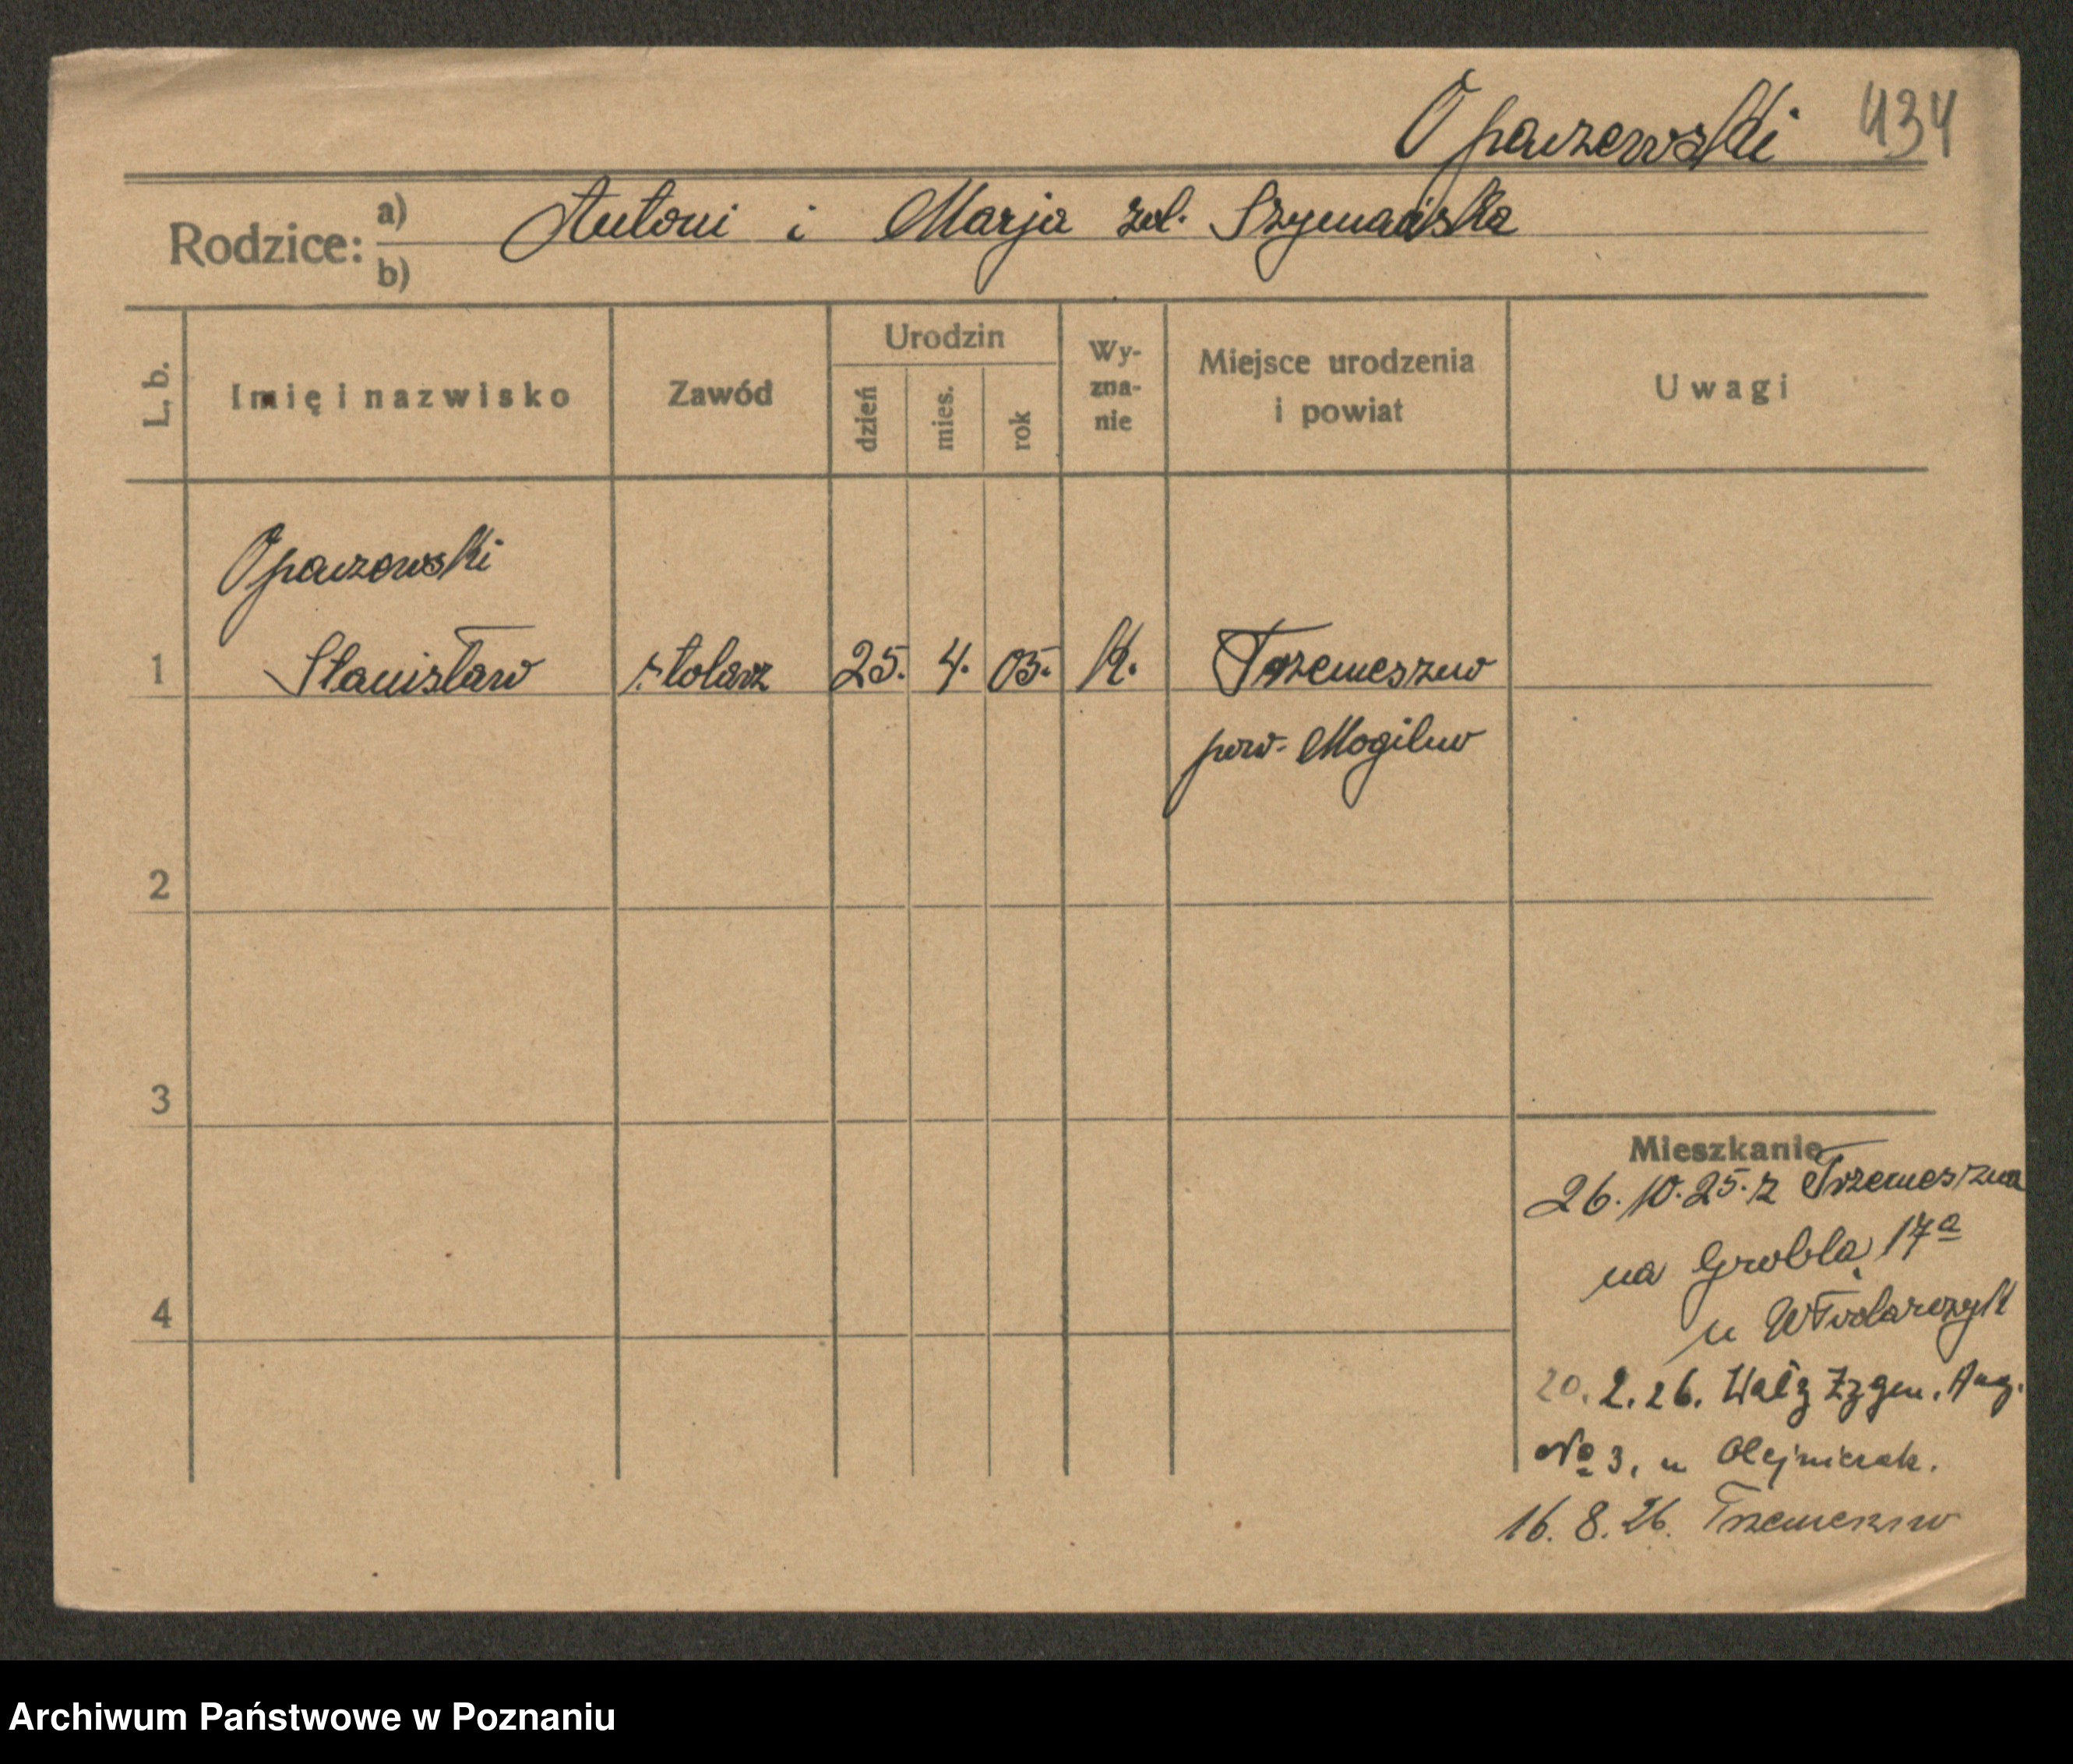 Opaczewski 434
Rodzice: a) Antoni i Marja zd. Szymańska
b)
L. b. Imię i nazwisko Zawód Urodzin dzień mies. rok Wy-zna-nie Miejsce urodzenia i powiat Uwagi
Opaczewski
1 Stanisław stolarz 25. 4. 05. K. Trzemeszno
pow. Mogilno
2
3
Mieszkanie
26.10.25. z Trzemeszna
na Groblą 17a
4
u Włodarczyk
20.2.26. Wały Zygm. Aug.
No 3, u Olejniczak.
16.8.26. Trzemeszno
Archiwum Państwowe w Poznaniu